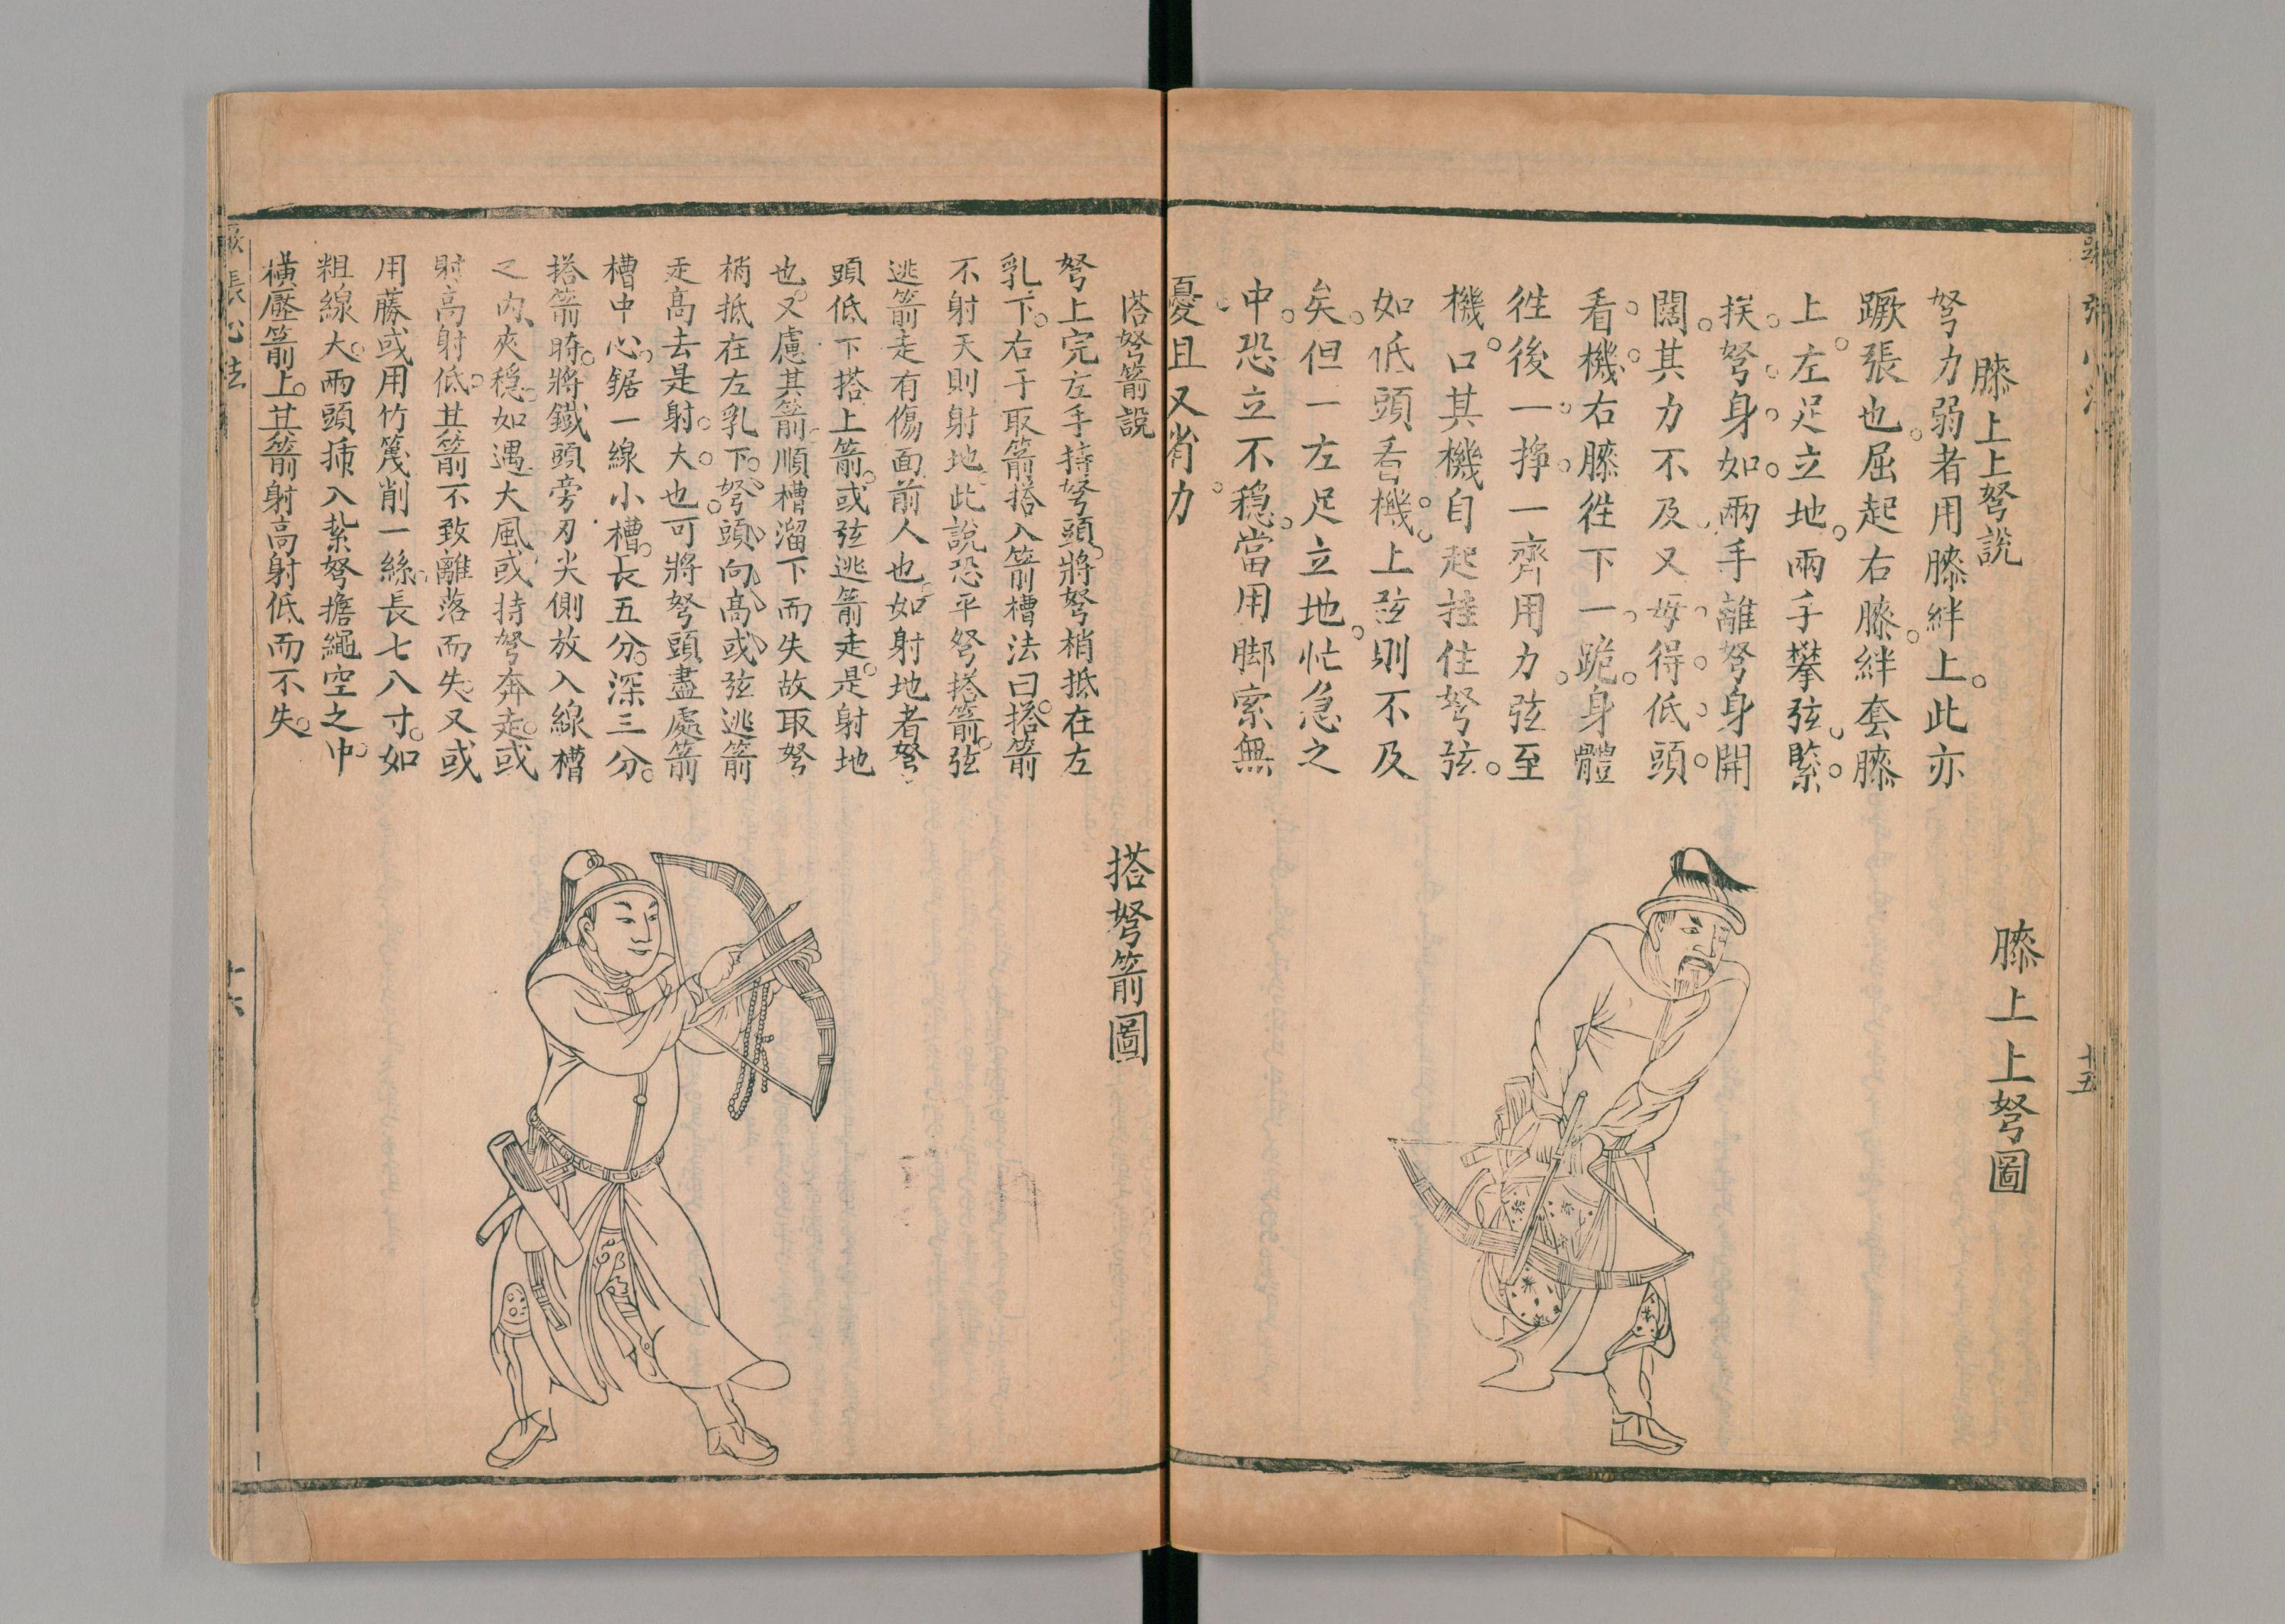 膝上上弩說
弩力弱者用膝絆上。此亦
蹶張也。屈起右膝。絆套膝
上。左足立地。兩手攀弦。緊。
挨。弩。身。如。兩手離弩身開
闊。其力不及、又毋。得。低。頭。
看。機。右膝徃下一。跪。身體
徃後一。掙。一齊用力。弦至
機口。其機自起挂住弩弦。
如低頭看機。上弦則不及
矣。但一左足立地。忙急之
中。恐立不穏。當用脚索無
憂。且又省力。
膝上上弩圖
十五
搭弩箭說
弩上完左手持弩頭。將弩梢抵在左
乳下。右手取箭搭入箭槽法曰。搭箭
不射天則射地。此說恐平弩搭箭。弦
逃箭走有傷面前人也。如射地者弩
頭低下搭上箭。或弦逃箭走。是射地
也。又慮其箭順槽溜下而失故取弩
梢抵在左乳下。弩。頭、向、高、或、弦逃箭
走高去是射。大。也可將弩頭盡處箭
槽中心。鋸一線小槽。長五分。深三分。
搭箭時。將鐵頭旁刃尖側放入線槽
之內、夾穏。如遇大風或持弩奔走。或
射高射低。其箭不致離落而失。又或
用藤或用竹篾削一絲。長七八寸。如
粗線大。兩頭揷入紮弩擔繩空之中。
橫壓箭上。其箭射高射低而不失。
搭弩箭圖
蹶張心法
十六